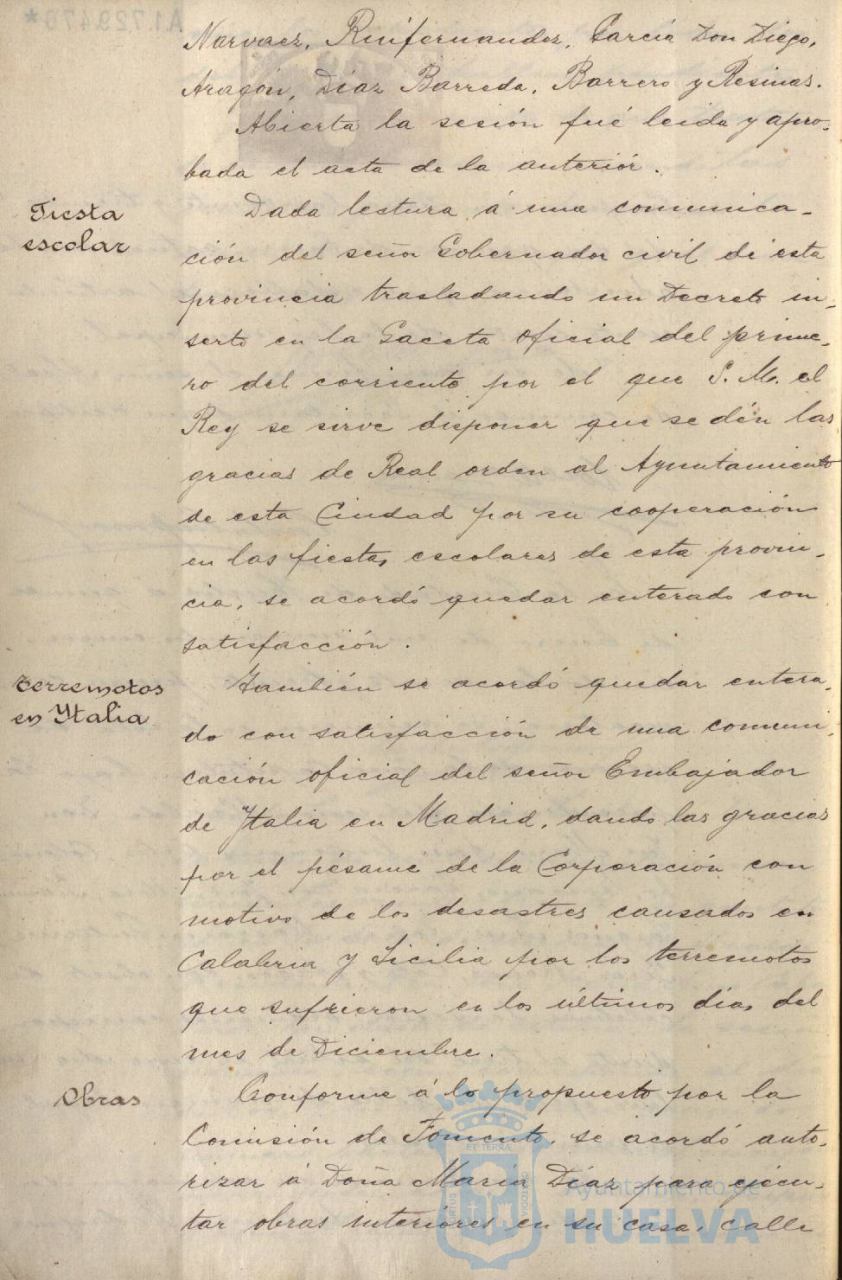 Narvaez, Ruifernandez, García Don Diego,
Aragón, Díaz Barreda, Barrero y Resinas.
Abierta la sesión fué leida y apro-
bada el acta de la anteriór.
Fiesta
escolar
Dada lectura á una comunica-
ción del señor Gobernador civil de esta
provincia trasladando un Decreto in-
serto en la Gaceta oficial del prime-
ro del corriente por el que S. M. el
Rey se sirve disponer que se dén las
gracias de Real orden al Ayuntamiento
de esta Ciudad por su cooperación
en las fiestas escolares de esta provin-
cia, se acordó quedar enterado con
satisfacción.
Terremotos
en Ytalia
También se acordó quedar entera-
do con satisfacción de una comuni-
cación oficial del señor Embajador
de Ytalia en Madrid, dando las gracias
por el pésame de la Corporación con
motivo de los desastres causados en
Calabria y Sicilia por los terremotos
que sufrieron en los últimos días del
mes de Diciembre.
Obras
Conforme á lo propuesto por la
Comisión de Fomento, se acordó auto-
rizar á Doña María Díaz para ejecu-
tar obras interióres en su casa, calle
Ayuntamiento de
HUELVA